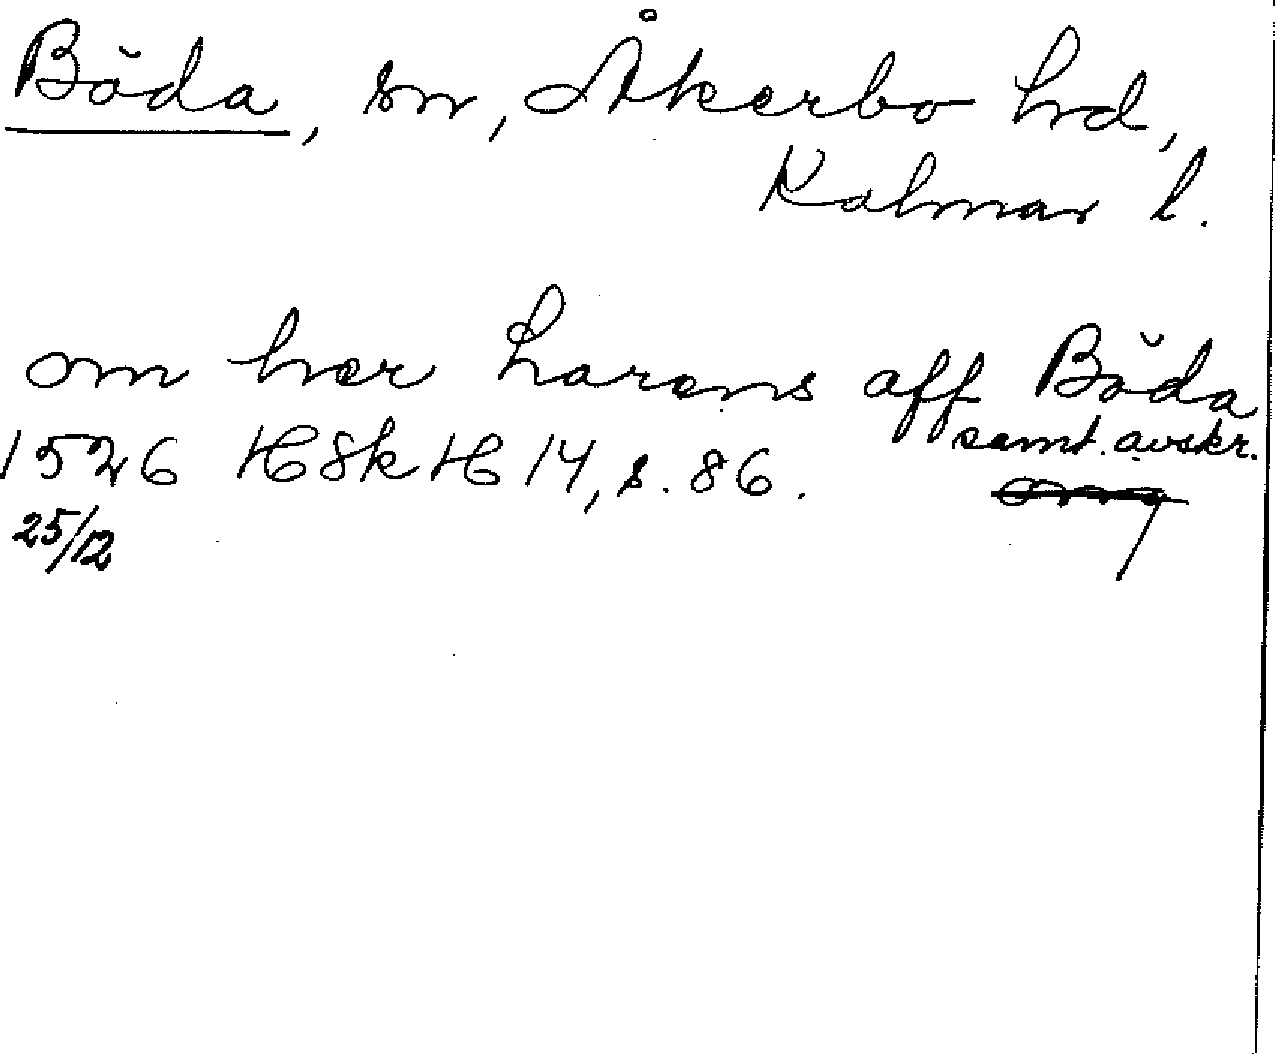 Böda, sn, Åkerbo hd,
Kalmar l.
om her larens aff Böda
1526 HSkH 14, s. 86. samt. avskr.
25/12